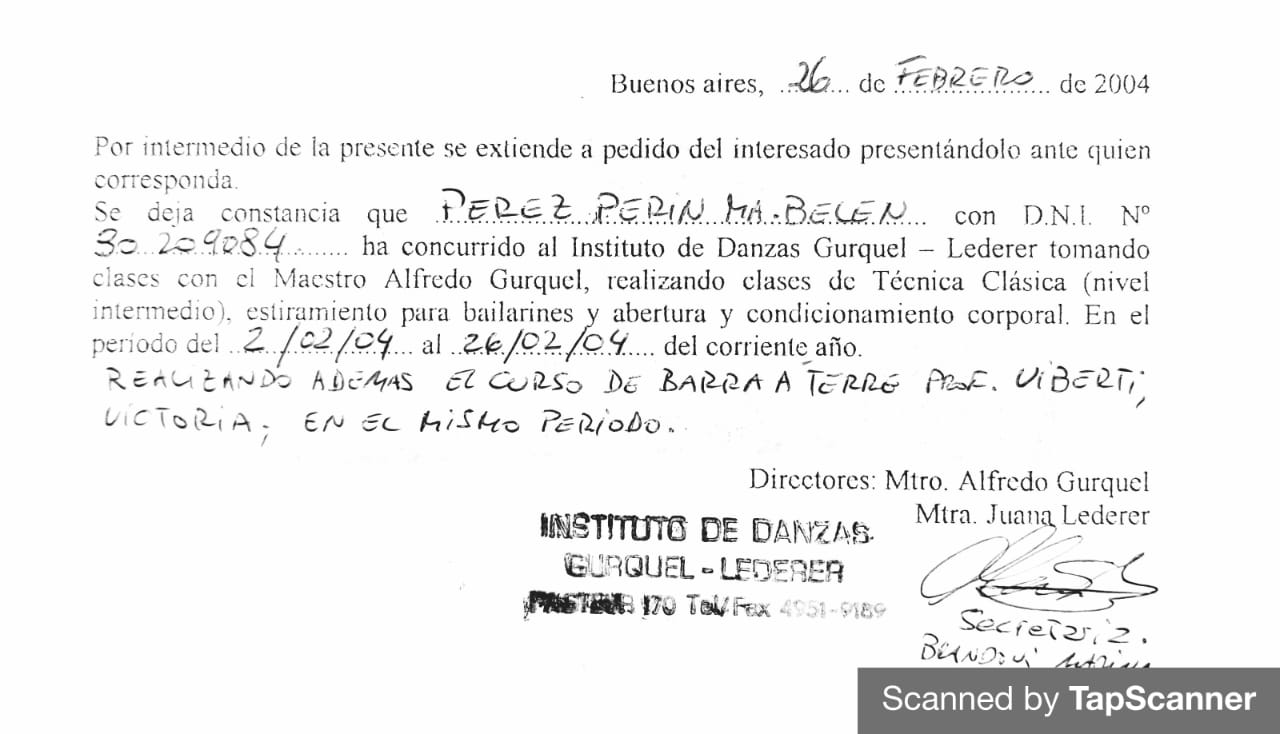 Buenos aires, 26 de FEBRERO de 2004
Por intermedio de la presente se extiende a pedido del interesado presentándolo ante quien
corresponda.
Se deja constancia que PEREZ PERIN MA. BELEN con D.N.I. Nº
30.209084 ha concurrido al Instituto de Danzas Gurquel – Lederer tomando
clases con el Maestro Alfredo Gurquel, realizando clases de Técnica Clásica (nivel
intermedio), estiramiento para bailarines y abertura y condicionamiento corporal. En el
periodo del 2/02/04 al 26/02/04 del corriente año.
REALIZANDO ADEMAS EL CURSO DE BARRA A TERRE PROF. VIBERTI,
VICTORIA; EN EL MISMO PERIODO.
Directores: Mtro. Alfredo Gurquel
Mtra. Juana Lederer
INSTITUTO DE DANZAS
GURQUEL - LEDERER
PASTEUR 170 Tel/Fax 4951-9189
Secretaria.
Scanned by TapScanner